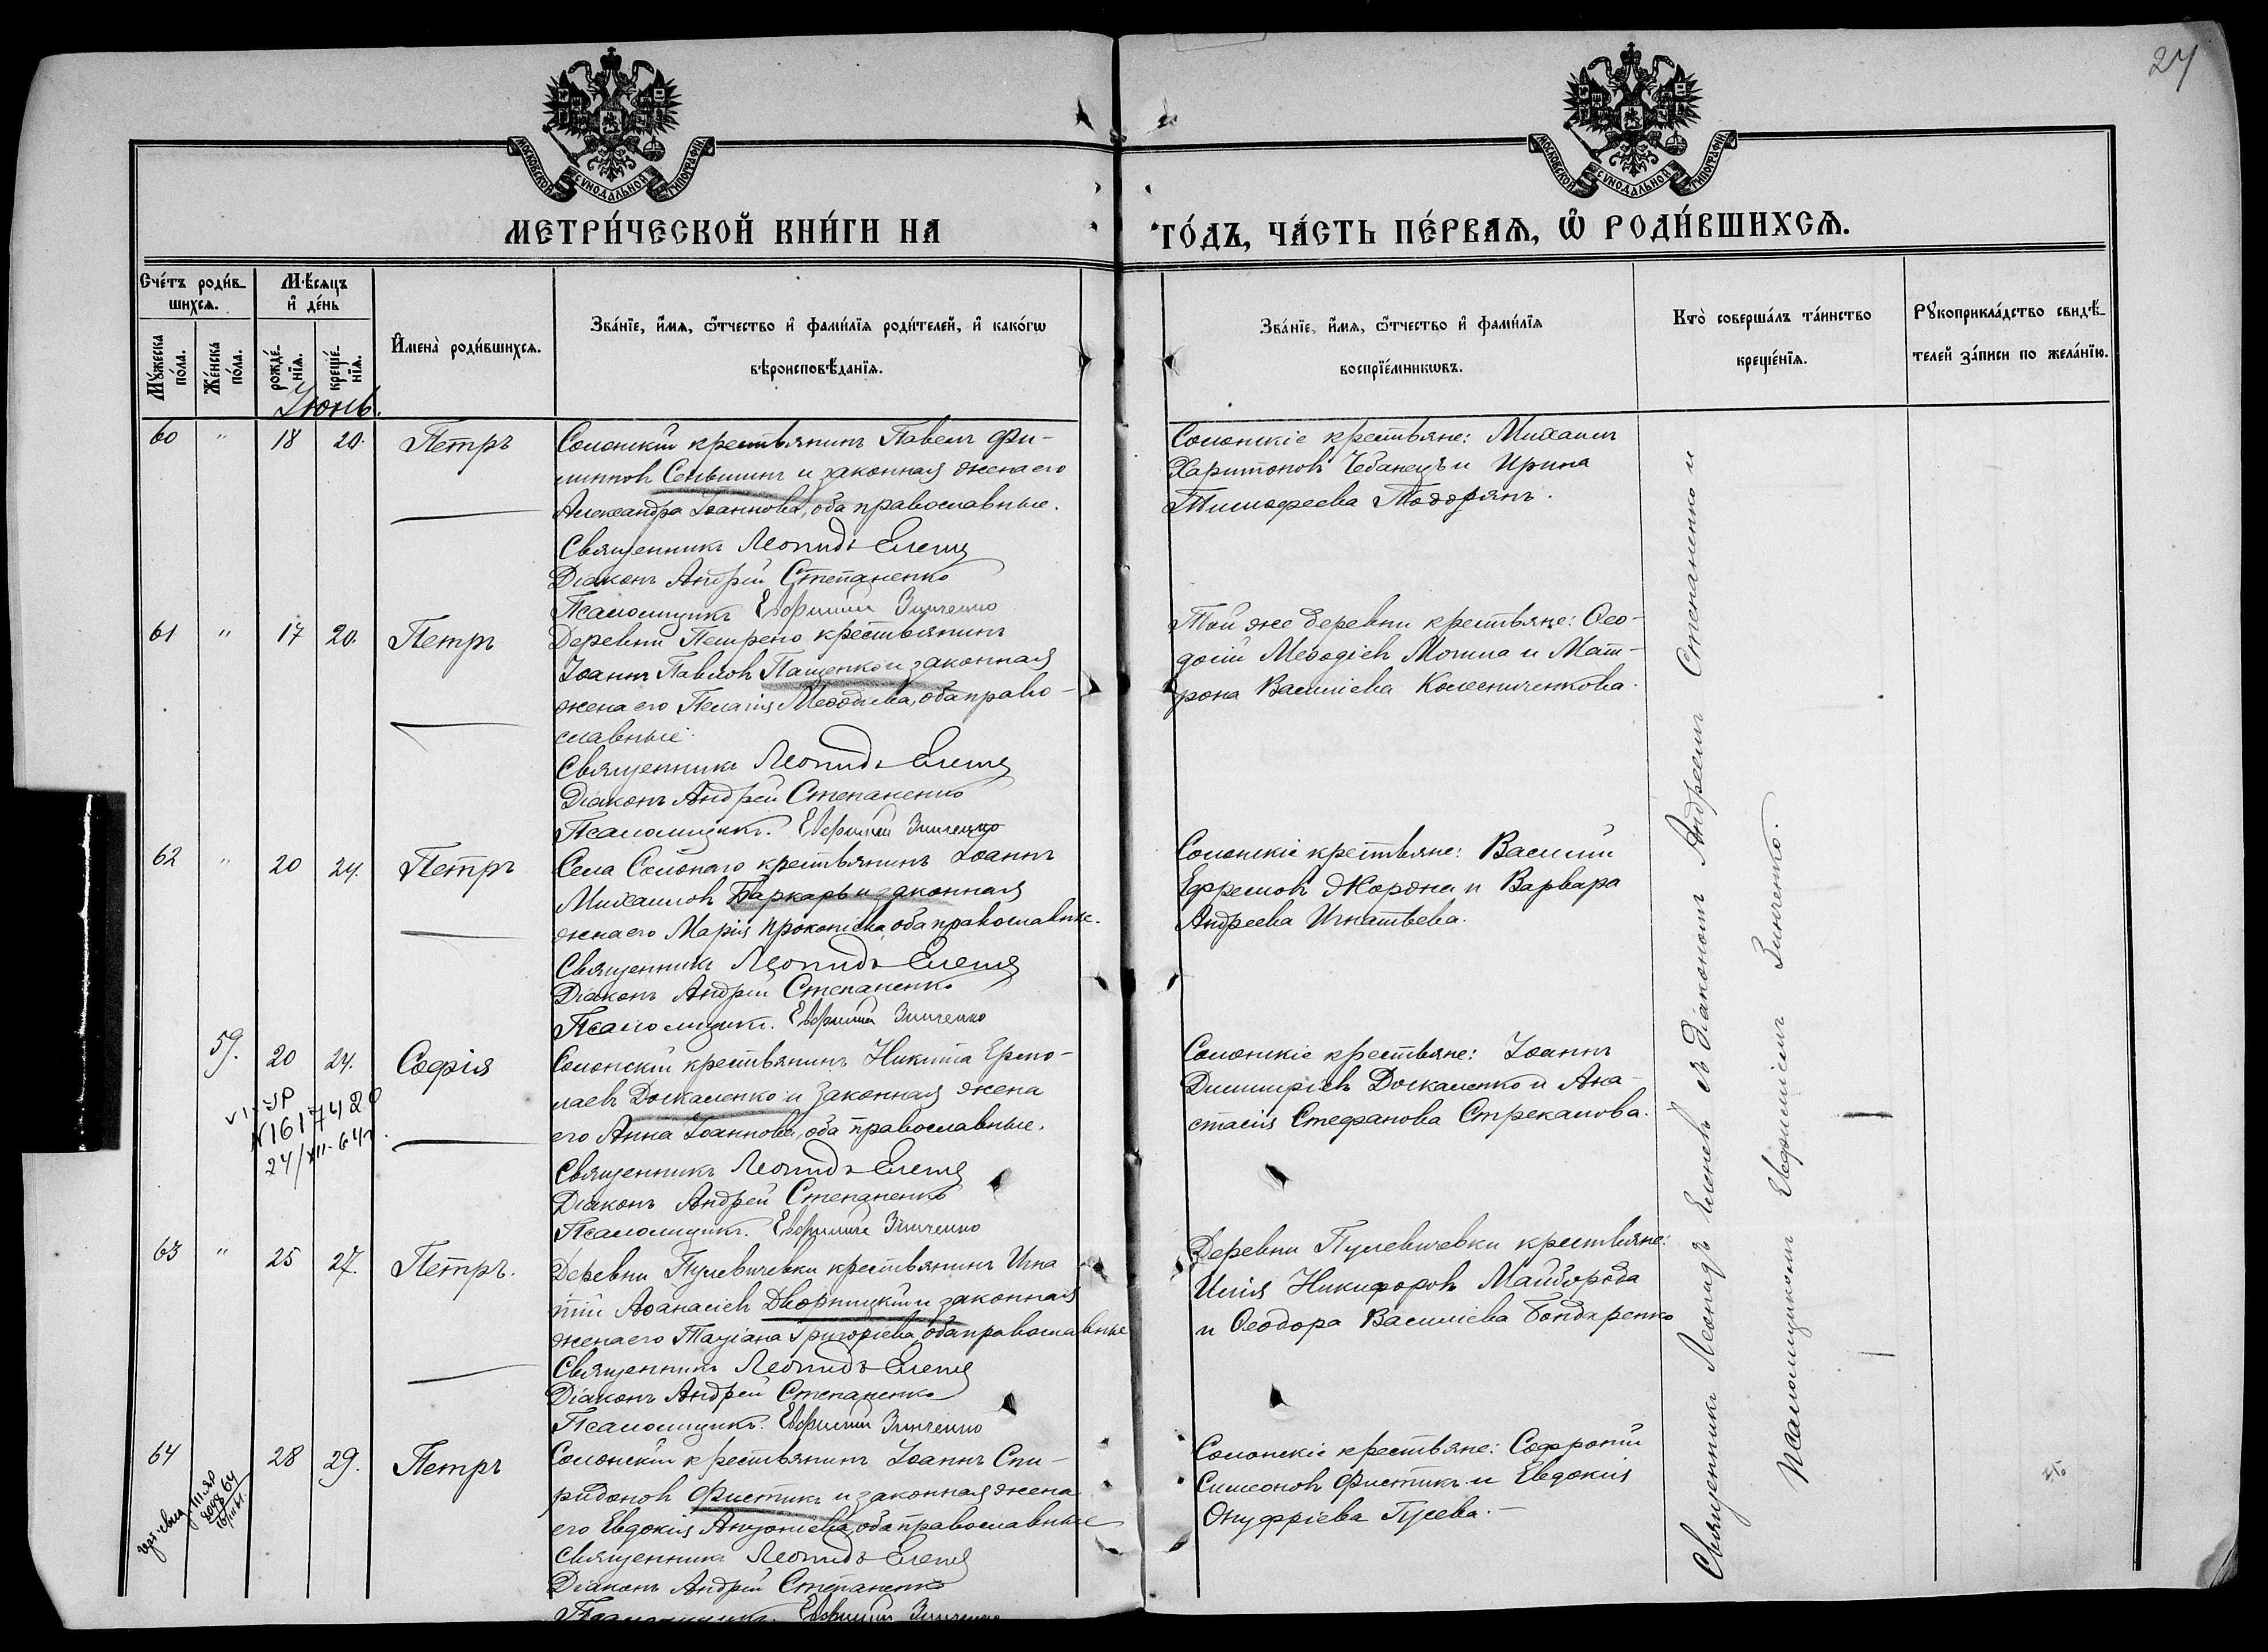 27
МОСКОВСКОЙ СѴНОДАЛЬНОЙ ТИПОГРАФІИ
МОСКОВСКОЙ СѴНОДАЛЬНОЙ ТИПОГРАФІИ
МЕТРИ́ЧЕСКОЙ КНИ́ГИ НА
ГО́ДЪ, ЧА́СТЬ ПЕ́РВАѦ, Ѡ҆ РОДИ́ВШИХСѦ.
Сче́тъ роди́в-
шихсѧ.
Мꙋ́жеска
по́ла.
Же́нска
по́ла.
Мѣ́сяцъ
и҆ де́нь
рожде́-
нїѧ.
креще́-
нїѧ.
И҆мена̀ роди́вшихсѧ.
Зва́нїе, и҆́мѧ, ѻ҆́тчество и҆ фами́лїѧ роди́телей, и҆ како́гѡ
вѣроисповѣ́данїѧ.
Зва́нїе, и҆́мѧ, ѻ҆́тчество и҆ фами́лїѧ
воспрїе́мникѡвъ.
Кто̀ соверша́лъ та́инство
креще́нїѧ.
Рꙋкоприкла́дство свидѣ́-
телей за́писи по жела́нїю.
Іюнь.
60 " 18 20. Петръ
Солонскій крестьянинъ Павелъ Фи-
липповъ Сеньшинъ и законная жена его
Александра Іоаннова, оба православные.
Священникъ Леонидъ Еленев
Діаконъ Андрей Степаненко
Псаломщикъ Евфимій Зинченко
Солонскіе крестьяне: Михаилъ
Харитоновъ Чебанецъ и Ирина
Тимофеева Тодорянъ.
61 " 17 20. Петръ
Деревни Петрено крестьянинъ
Іоаннъ Павловъ Пащенко и законная
жена его Пелагія Меѳодіева, оба право-
славные.
Священникъ Леонидъ Еленев
Діаконъ Андрей Степаненко
Псаломщикъ. Евфимій Зинченко
Той же деревни крестьяне: Ѳео-
досій Меѳодіевъ Мотила и Мат-
рона Василіева Колесниченкова.
62 " 20 24. Петръ
Села Солонаго крестьянинъ Іоаннъ
Михаиловъ Баркарь и законная
жена его Марія Прокопіева, оба православные.
Священникъ Леонидъ Еленев
Діаконъ Андрей Степаненко
Псаломщикъ. Евфимій Зинченко
Солонскіе крестьяне: Василій
Ефремовъ Жоржа и Варвара
Андреева Игнатьева.
59. 20 24. Софія
VI-УР
N1617420
24/XII-64г.
Солонскій крестьянинъ Никита Ермо-
лаевъ Доскаленко и законная жена
его Анна Іоаннова, оба православные.
Священникъ Леонидъ Еленев
Діаконъ Андрей Степаненко
Псаломщикъ. Евфимій Зинченко
Солонскіе крестьяне: Іоаннъ
Димитріевъ Доскаленко и Ана-
стасія Стефанова Стрекалова.
63 " 25 27. Петръ.
Деревни Пулевичевки крестьянинъ Игна
тій Аѳанасіевъ Дворницкій и законная
жена его Таціана Григоріева, оба православные
Священникъ Леонидъ Еленев
Діаконъ Андрей Степаненко
Псаломщикъ. Евфимій Зинченко
Деревни Пулевичевки крестьяне:
Илія Никифоровъ Майборода
и Ѳеодора Василіева Бондаренко
64 28 29. Петръ
Солонскій крестьянинъ Іоаннъ Спи-
ридоновъ Фистикъ и законная жена
его Евдокія Антоніева, оба православные
Священникъ Леонидъ Еленев
Діаконъ Андрей Степаненко
Псаломщикъ. Евфимій Зинченко
Солонскіе крестьяне: Софроній
Симеоновъ Фистикъ и Евдокія
Онуфріева Гусева.
Священникъ Леонидъ Еленевъ съ Діакономъ Андреемъ Степаненко и
Псаломщикомъ Евфиміемъ Зинченко.